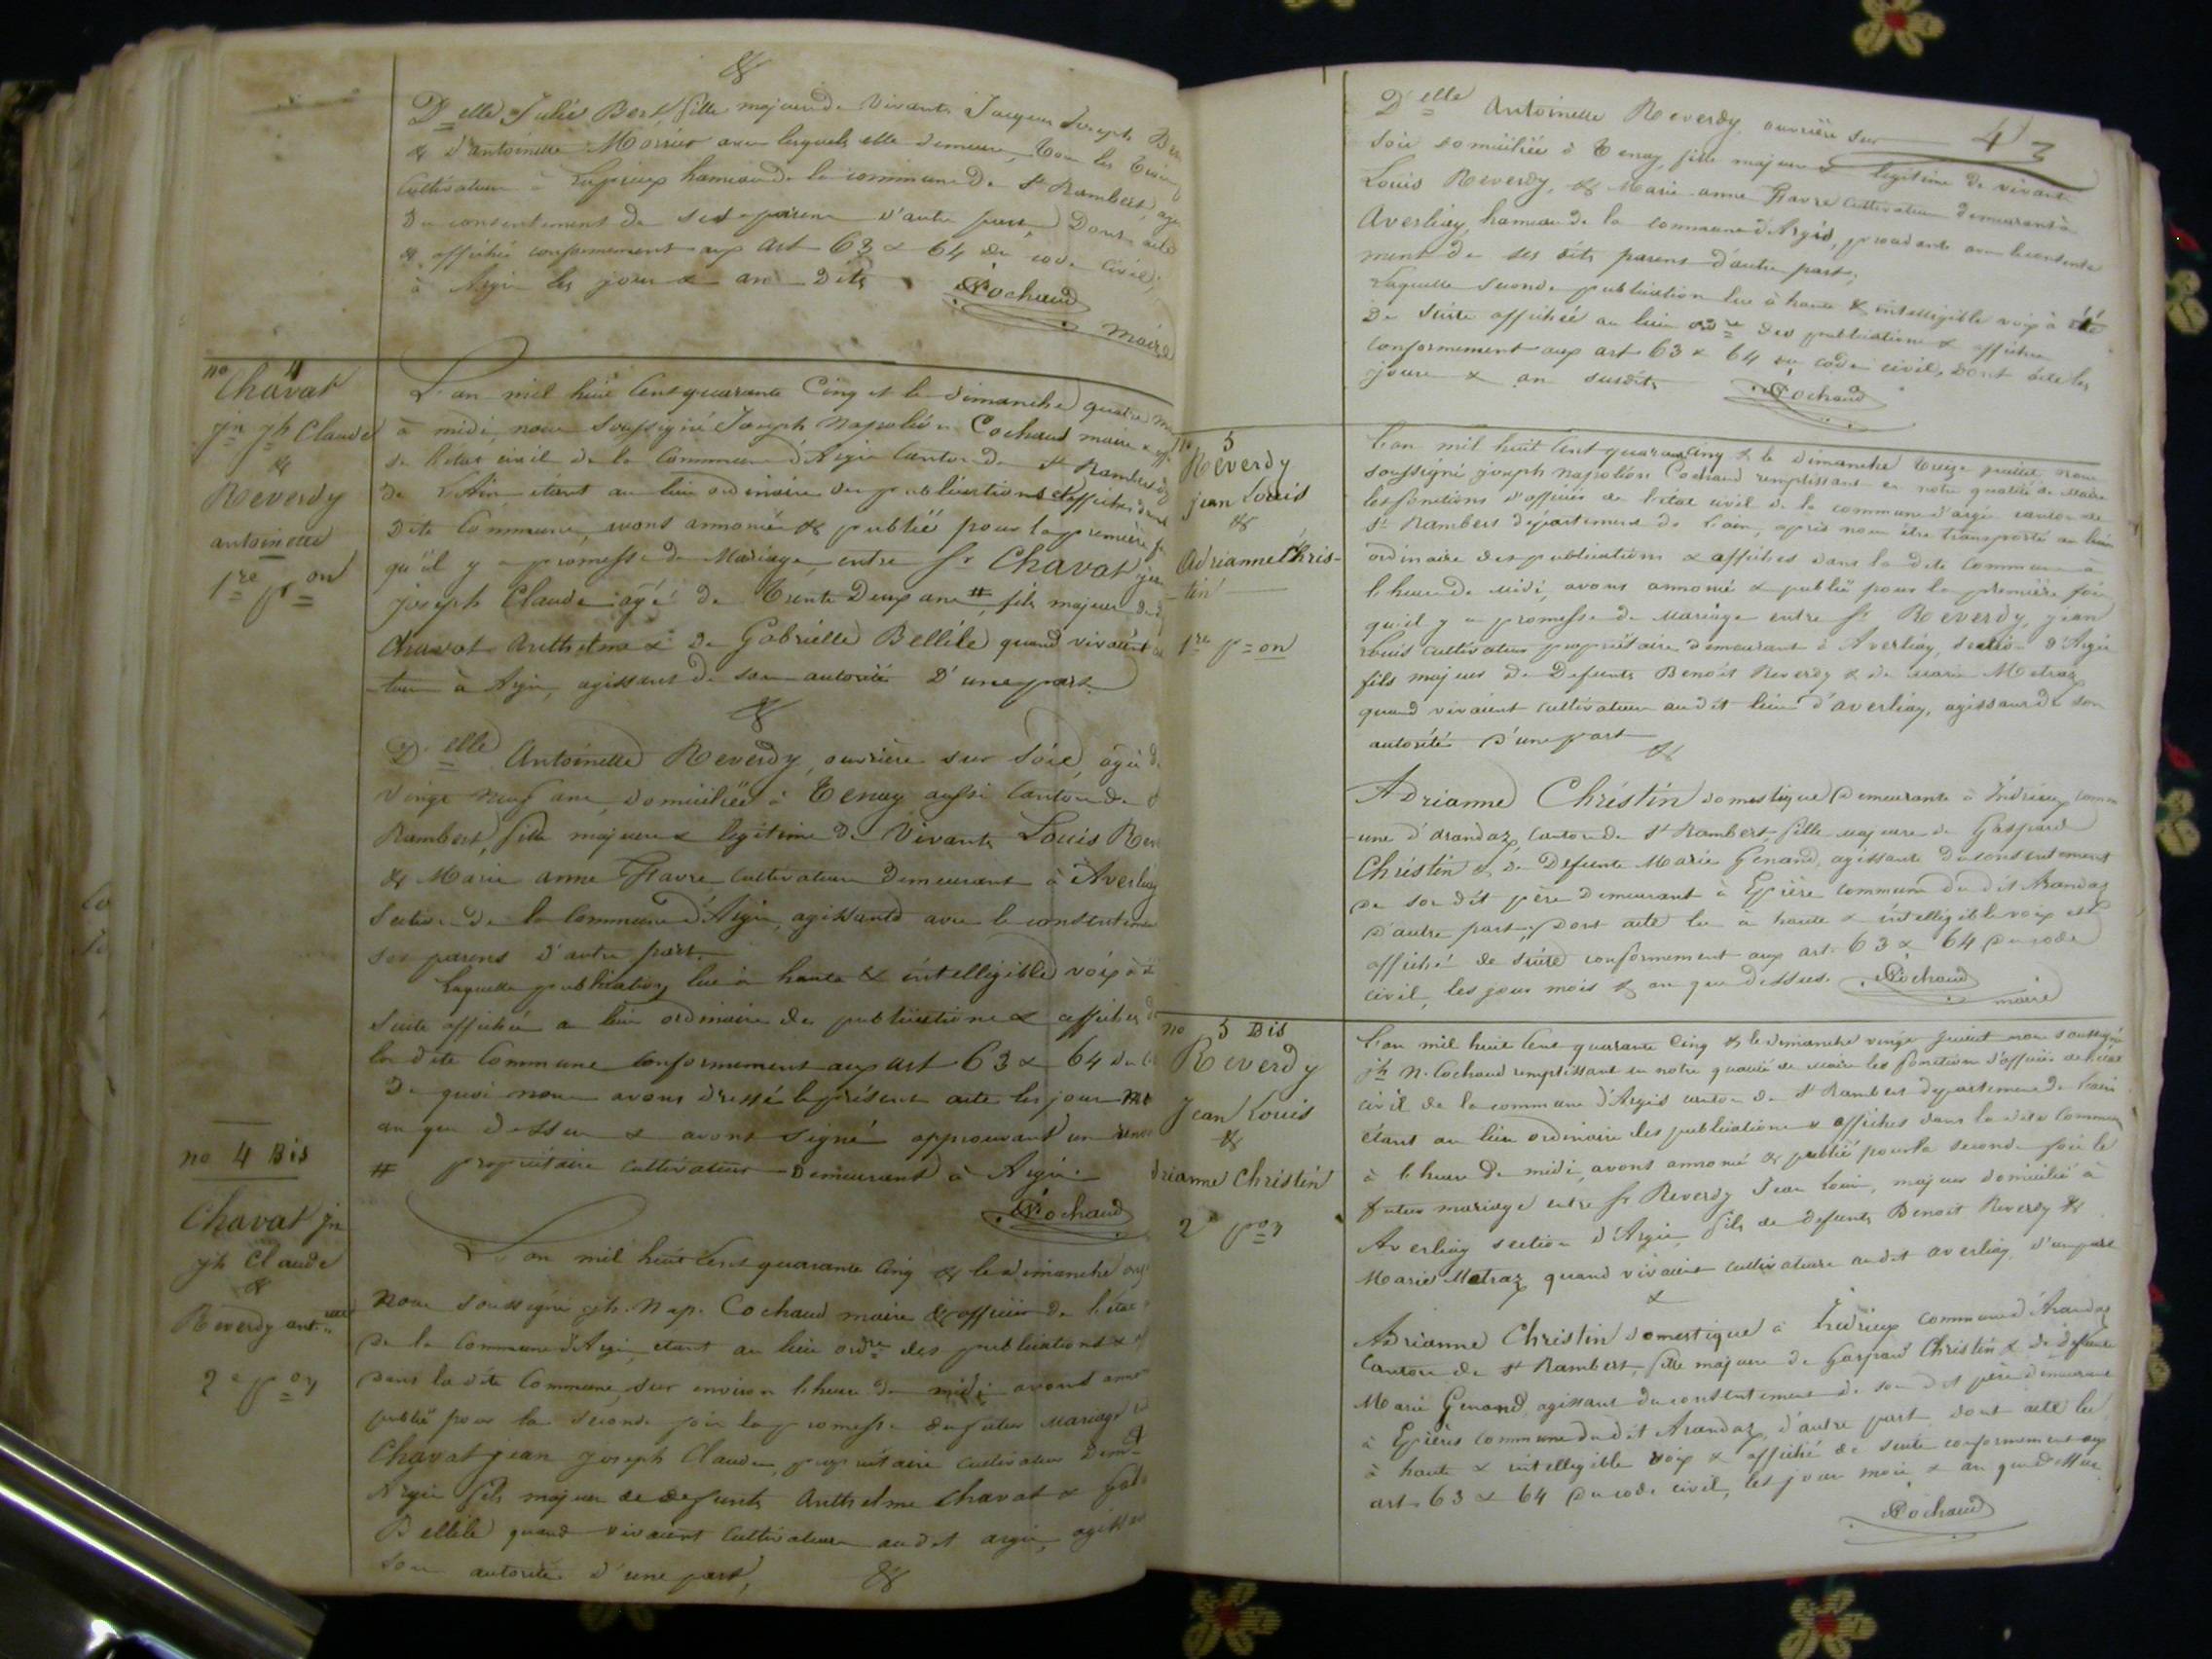 &
Delle Julie Bert fille majeure de vivants Jacques Joseph
& d'antoinette avec lesquels elle demeure, tous les
Cultivateurs à hameau de la commune de St Rambert,
du consentement de ses parens d'autre part, Dont acte
& affiché conformement aux Art 63 & 64 du code Civil,
à Argis les jour & an Dits Cochaud
maire
no 4
Chavat
jn jh Claude
&
Reverdy
antoinette
1re pon
L'an mil huit Cent quarante Cinq et le dimanche quatre
à midi, nous Soussigné Joseph Napoléon Cochaud maire &
de l'etat civil de la Commune d'Argis Canton de St Rambert
de L'Ain etant au lieu ordinaire des publications et affiches dans
Dite Commune, avons annoncé & publié pour la première
qu'il y a promesse de Mariage entre Sr Chavat jean
joseph Claude agé de Trente Deux ans # fils majeur de
Chavat Anthelme & De Gabrielle Bellile quand vivaient
teurs à Argis, agissant de son autorité D'une part
&
Delle Antoinette Reverdy, ouvrière sur Soie, agée de
vingt neuf ans domiciliée à Tenay aussi Canton de
Rambert, fille majeure & legitime de Vivants Louis
& Marie anne Favre Cultivateurs Demeurant à Averliay
Section de la Commune d'Argis, agissante avec le
ses parens d'autre part.
Laquelle publication lue à haute & intelligible voix à
suite affichée au lieu ordinaire des publications & affiches
la dite Commune conformement aux art 63 & 64 du
De quoi nous avons dressé le présent acte les jour
an que dessus & avons signé approuvant un
# propriétaire cultivateur Demeurant à Argis.
Cochaud
no 4 Bis
Chavat jn
jh Claude
&
Reverdy
2e pon
L'an mil huit Cent quarante Cinq & le dimanche
Nous soussigné jh. Nap. Cochaud maire & officier de l'état
De la Commune d'Argis, etant au lieu ordre des publications &
Dans la dite Commune, sur environ l'heure de midi avons
publié pour la seconde fois la promesse du futur Mariage
Chavat jean joseph Claude, propriétaire Cultivateur
Argis fils majeur de defunts Anthelme Chavat &
Bellile quand vivaient Cultivateurs audit argis,
son autorité d'une part, &
43
Delle Antoinette Reverdy, ouvrière sur
soie domiciliée à Tenay, fille majeure & legitime de vivants
Louis Reverdy, & Marie anne Favre Cultivateurs demeurant à
Averliay, hameau de la commune d'Argis, procedante avec le consente
ment de ses dits parens d'autre part,
Laquelle seconde publication lue à haute & intelligible voix à été
De Suite affichée au lieu ordre des publications & affiches
conformement aux art 63 & 64 du code civil, Dont acte les
jour & an susdits Cochaud
no 5
Reverdy
jean Louis
&
Adrianne Chris-
tin
1re pon
L'an mil huit Cent quarante Cinq & le dimanche treize juillet, nous
soussigné joseph napoléon Cochaud remplissant en notre qualité de Maire
les fonctions d'officier de l'état civil de la commune d'argis canton de
St Rambert département de L'ain, après nous être transporté au lieu
ordinaire des publications & affiches dans la dite commune à
l'heure de midi, avons annoncé & publié pour la première fois
qu'il y a promesse de Mariage entre Sr Reverdy, jean
Louis cultivateur propriétaire demeurant à Averliay, section d'Argis
fils majeur de Defunts Benoit Reverdy & de marie Metraz
quand vivaient cultivateurs audit lieu d'averliay, agissant de son
autorité D'une part
&
Adrianne Christin domestique Demeurante à Indrieux comm
-une d'arandaz, Canton de St Rambert, fille majeure de Gaspard
Christin & de Defunte Marie Genand, agissante du consentement
De son dit père Demeurant à Epière commune du dit Arandaz
D'autre part, Dont acte lu à haute & intelligible voix est
affiché de suite conformement aux art. 63 & 64 Du code
civil, les jour mois & an que Dessus. Cochaud
maire
no 5 Bis
Reverdy
Jean Louis
&
drianne Christin
2e pon
L'an mil huit Cent quarante Cinq & le dimanche vingt juillet nous soussigné
jh N. Cochaud remplissant en notre qualité de maire les fonctions d'officier de l'état
civil de la commune d'Argis canton de St Rambert departement de L'ain
étant au lieu ordinaire des publications & affiches dans la dite Commune
à l'heure de midi, avons annoncé & publié pour la seconde fois le
futur mariage entre Sr Reverdy Jean Louis, majeur domicilié à
Averliay section d'Argis, fils de defunts Benoit Reverdy &
Marie Metraz quand vivaient cultivateurs audit averliay, d'une part
&
Adrianne Christin domestique à Indrieux commune d'Arandaz
Canton de St Rambert, fille majeure de Gaspard Christin & de defunte
Marie Genand, agissant du consentement de son dit père demeurant
à Epières commune du dit Arandaz, d'autre part, dont acte lu
à haute & intelligible voix & affiché de suite conformement aux
art. 63 & 64 Du code civil, les jour mois & an que Dessus.
Cochaud